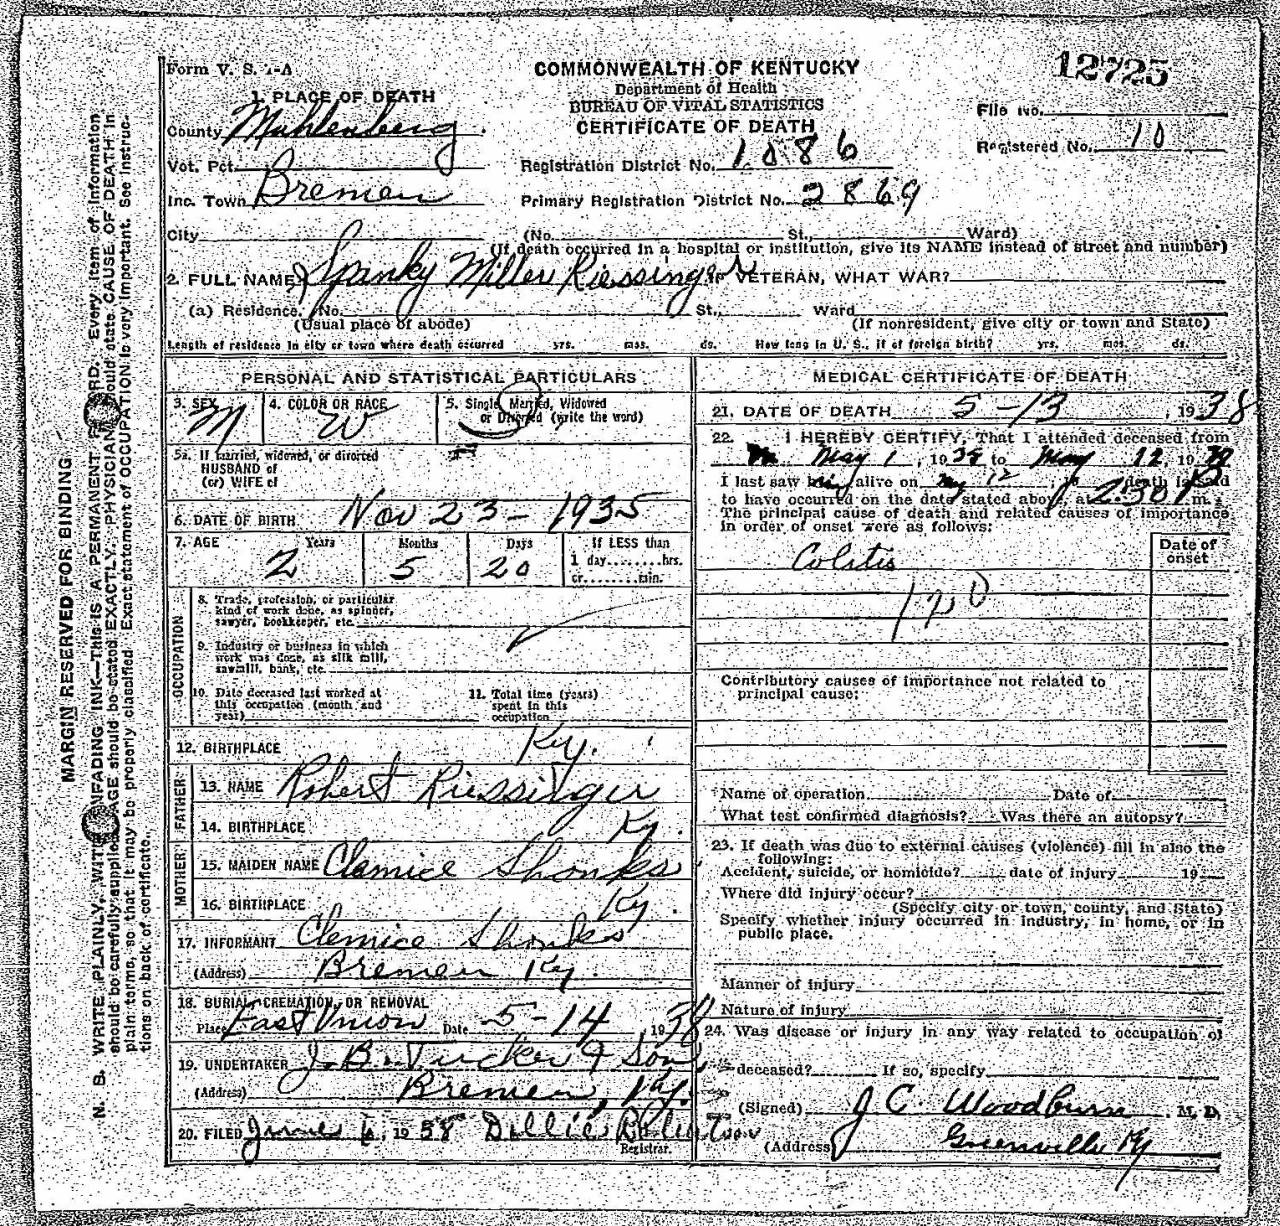 Form V. S. 1-A
COMMONWEALTH OF KENTUCKY
Department of Health
BUREAU OF VITAL STATISTICS
CERTIFICATE OF DEATH
12725
File No.
Registered No. 10
1. PLACE OF DEATH
County Muhlenberg
Vot. Pct.
Inc. Town Bremen
Registration District No. 1086
Primary Registration District No. 2869
City (No. St., Ward)
(If death occurred in a hospital or institution, give its NAME instead of street and number)
2. FULL NAME Spanky Miller Riessinger IF VETERAN, WHAT WAR?
(a) Residence. No. St., Ward
(Usual place of abode) (If nonresident, give city or town and State)
Length of residence in city or town where death occurred yrs. mos. ds. How long in U. S., if of foreign birth? yrs. mos. ds.
PERSONAL AND STATISTICAL PARTICULARS
3. SEX M
4. COLOR OR RACE W
5. Single, Married, Widowed
or Divorced (write the word)
S
5a. If married, widowed, or divorced
HUSBAND of
(or) WIFE of
6. DATE OF BIRTH Nov 23 - 1935
7. AGE Years Months Days If LESS than
2 5 20 1 day........hrs.
or........min.
OCCUPATION
8. Trade, profession, or particular
kind of work done, as spinner,
sawyer, bookkeeper, etc.
9. Industry or business in which
work was done, as silk mill,
sawmill, bank, etc.
10. Date deceased last worked at
this occupation (month and
year)
11. Total time (years)
spent in this
occupation
12. BIRTHPLACE Ky.
FATHER
13. NAME Robert Riessinger
14. BIRTHPLACE Ky.
MOTHER
15. MAIDEN NAME Clemice Shonks
16. BIRTHPLACE Ky.
17. INFORMANT Clemice Shonks
(Address) Bremen Ky.
18. BURIAL, CREMATION, OR REMOVAL
Place East Union Date 5-14, 1938
19. UNDERTAKER J. B. Tucker & Son
(Address) Bremen, Ky.
20. FILED June 6, 1938 Dollie Robertson
Registrar.
MEDICAL CERTIFICATE OF DEATH
21. DATE OF DEATH 5-13, 1938
22. I HEREBY CERTIFY, That I attended deceased from
May 1, 1938 to May 12, 1938
I last saw him alive on May 12, 19 death is said
to have occurred on the date stated above, at 2:30 P m.
The principal cause of death and related causes of importance
in order of onset were as follows:
Date of
onset
Colitis
120
Contributory causes of importance not related to
principal cause:
Name of operation Date of
What test confirmed diagnosis? Was there an autopsy?
23. If death was due to external causes (violence) fill in also the
following:
Accident, suicide, or homicide? date of injury 19
Where did injury occur?
(Specify city or town, county, and State)
Specify whether injury occurred in industry, in home, or in
public place.
Manner of injury
Nature of injury
24. Was disease or injury in any way related to occupation of
deceased? If so, specify
(Signed) J C. Woodburn M. D.
(Address) Greenville Ky
MARGIN RESERVED FOR BINDING
N. B. WRITE PLAINLY, WITH UNFADING INK—THIS IS A PERMANENT RECORD. Every item of information
should be carefully supplied. AGE should be stated EXACTLY. PHYSICIANS should state CAUSE OF DEATH in
plain terms, so that it may be properly classified. Exact statement of OCCUPATION is very important. See instruc-
tions on back of certificate.